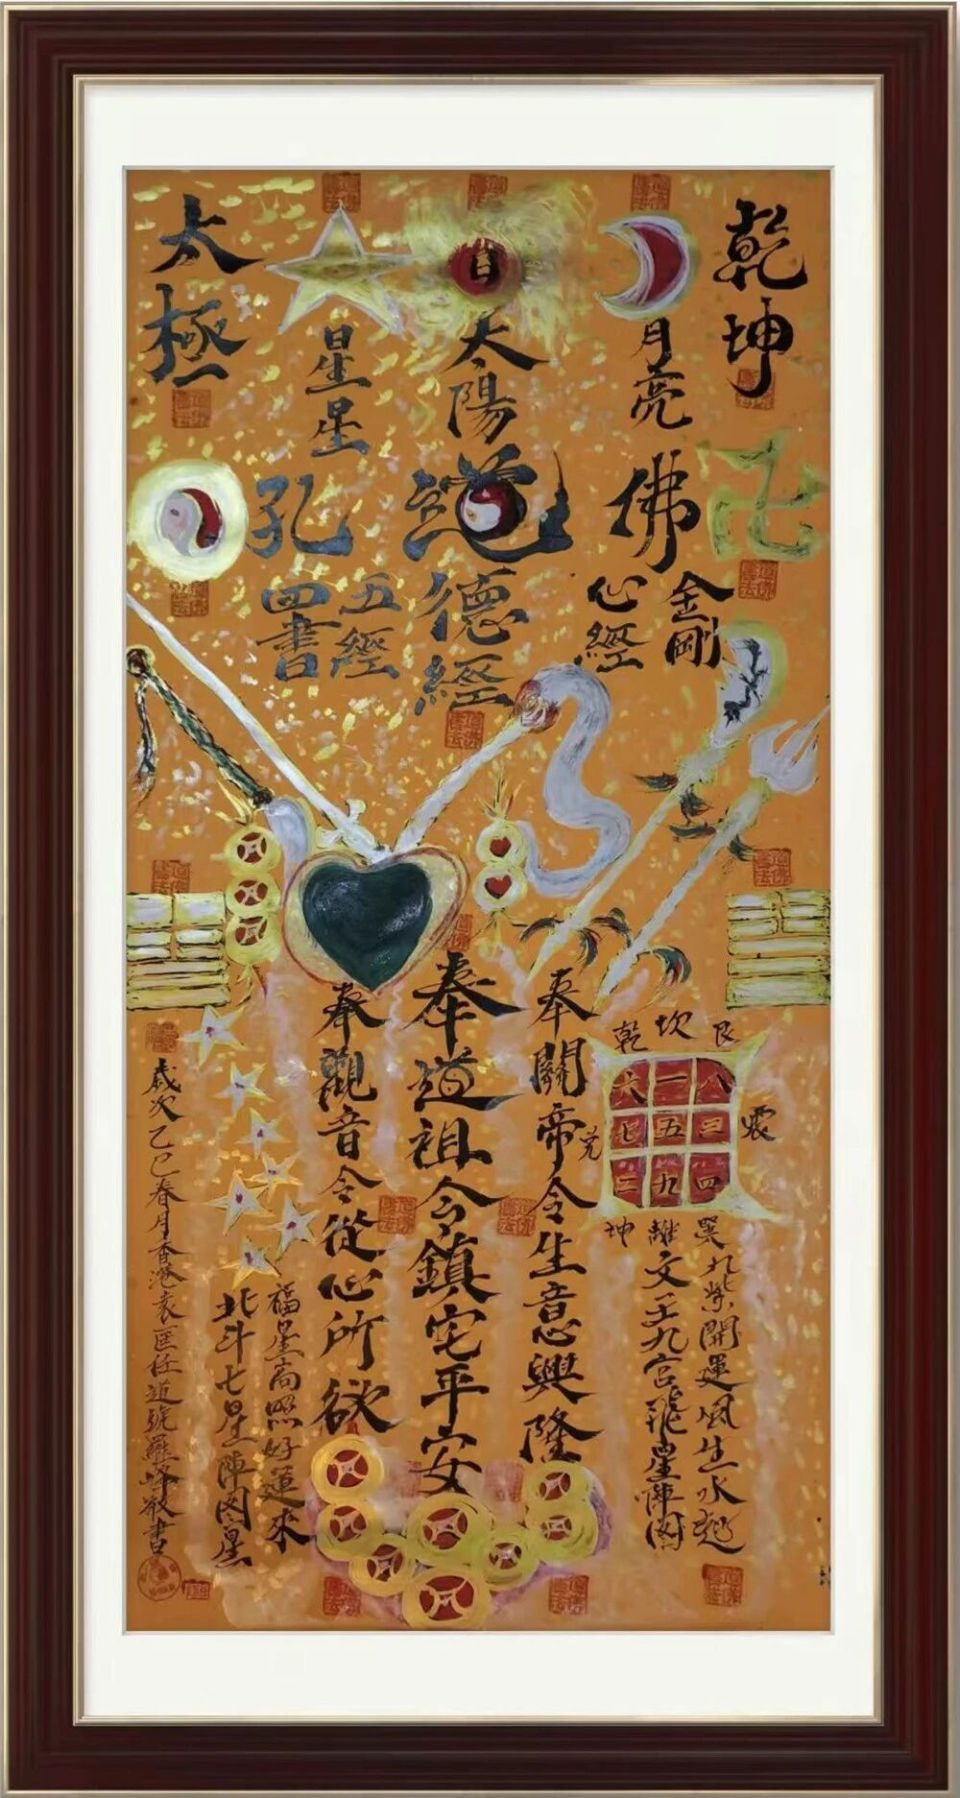 乾坤
月亮
太陽
日
星星
太極
佛
金剛
心經
道
德經
孔
五經
四書
奉關帝令生意興隆
奉道祖令鎮宅平安
奉觀音令從心所欲
乾 坎 艮
六 一 八
七 五 三
二 九 四
震
兌
坤 離 巽
九紫開運風生水起
文王九宮飛星陣图
福星高照好運来
北斗七星陣图星
歲次乙巳春月香港袁匡任道號羅峰敬書